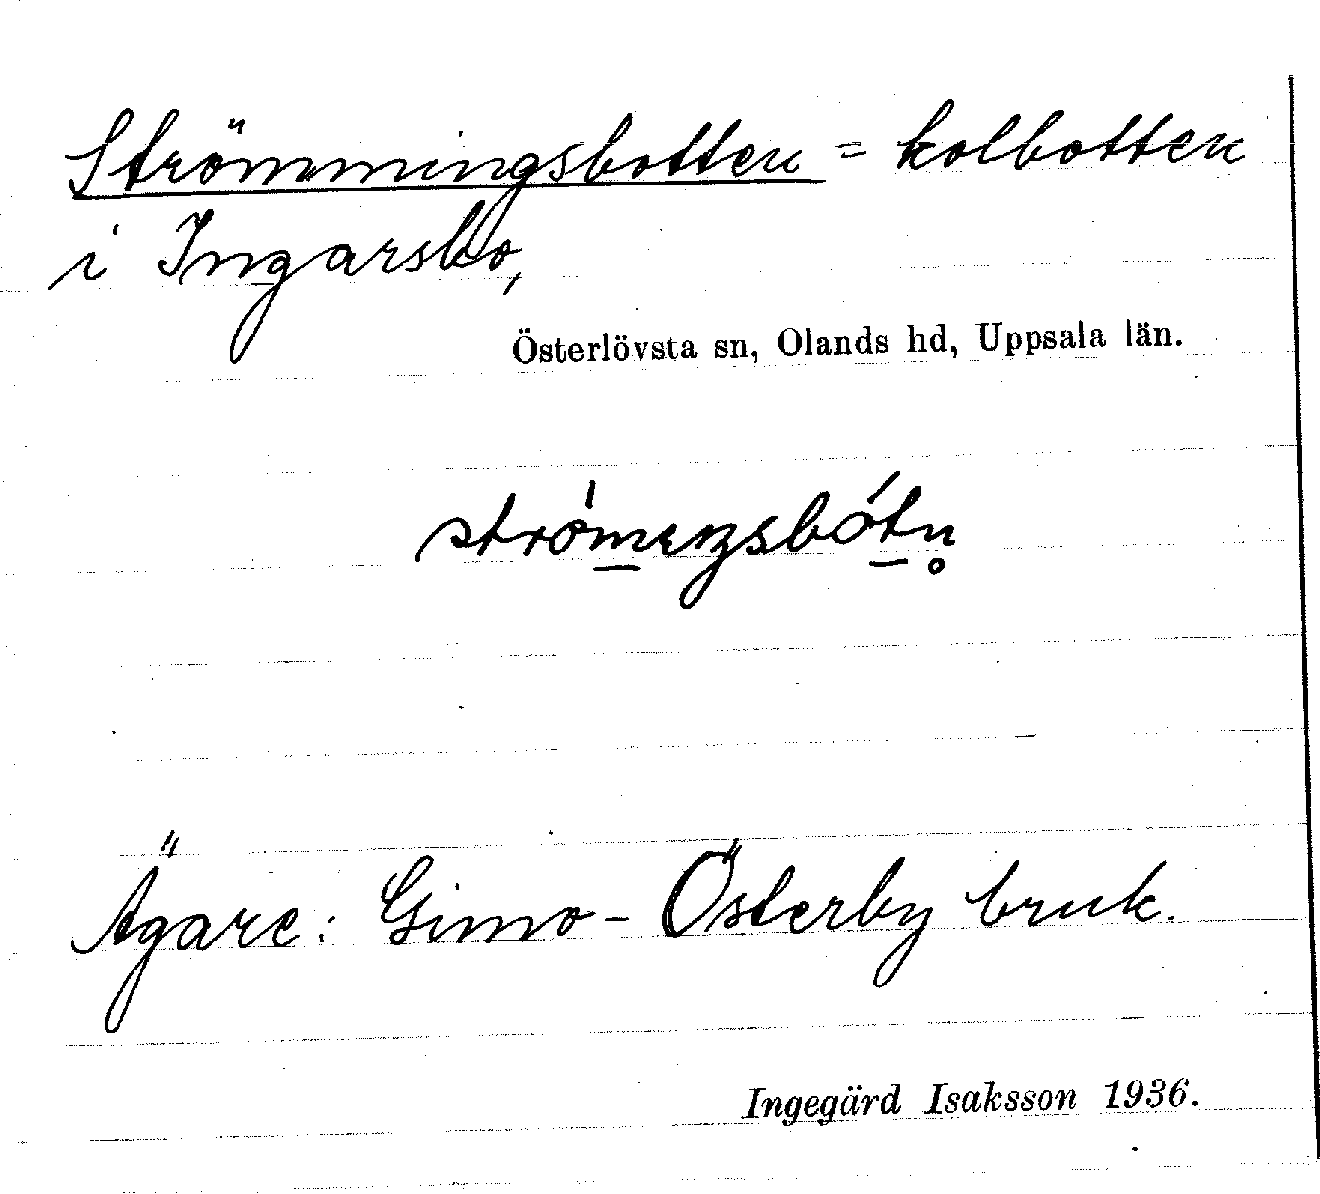 Strömmingsbotten = kolbotten
i Ingarsbo,
Österlövsta sn, Olands hd, Uppsala län.
Ägare: Gimo-Österby bruk.
Ingegärd Isaksson 1936.